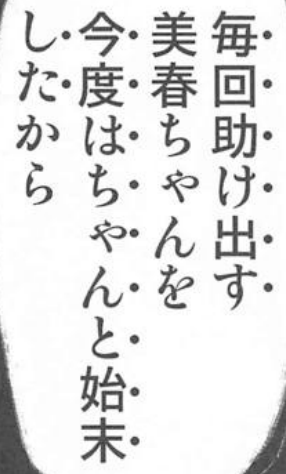 毎回助け出す
美春ちゃんを
今度はちゃんと始末
したから